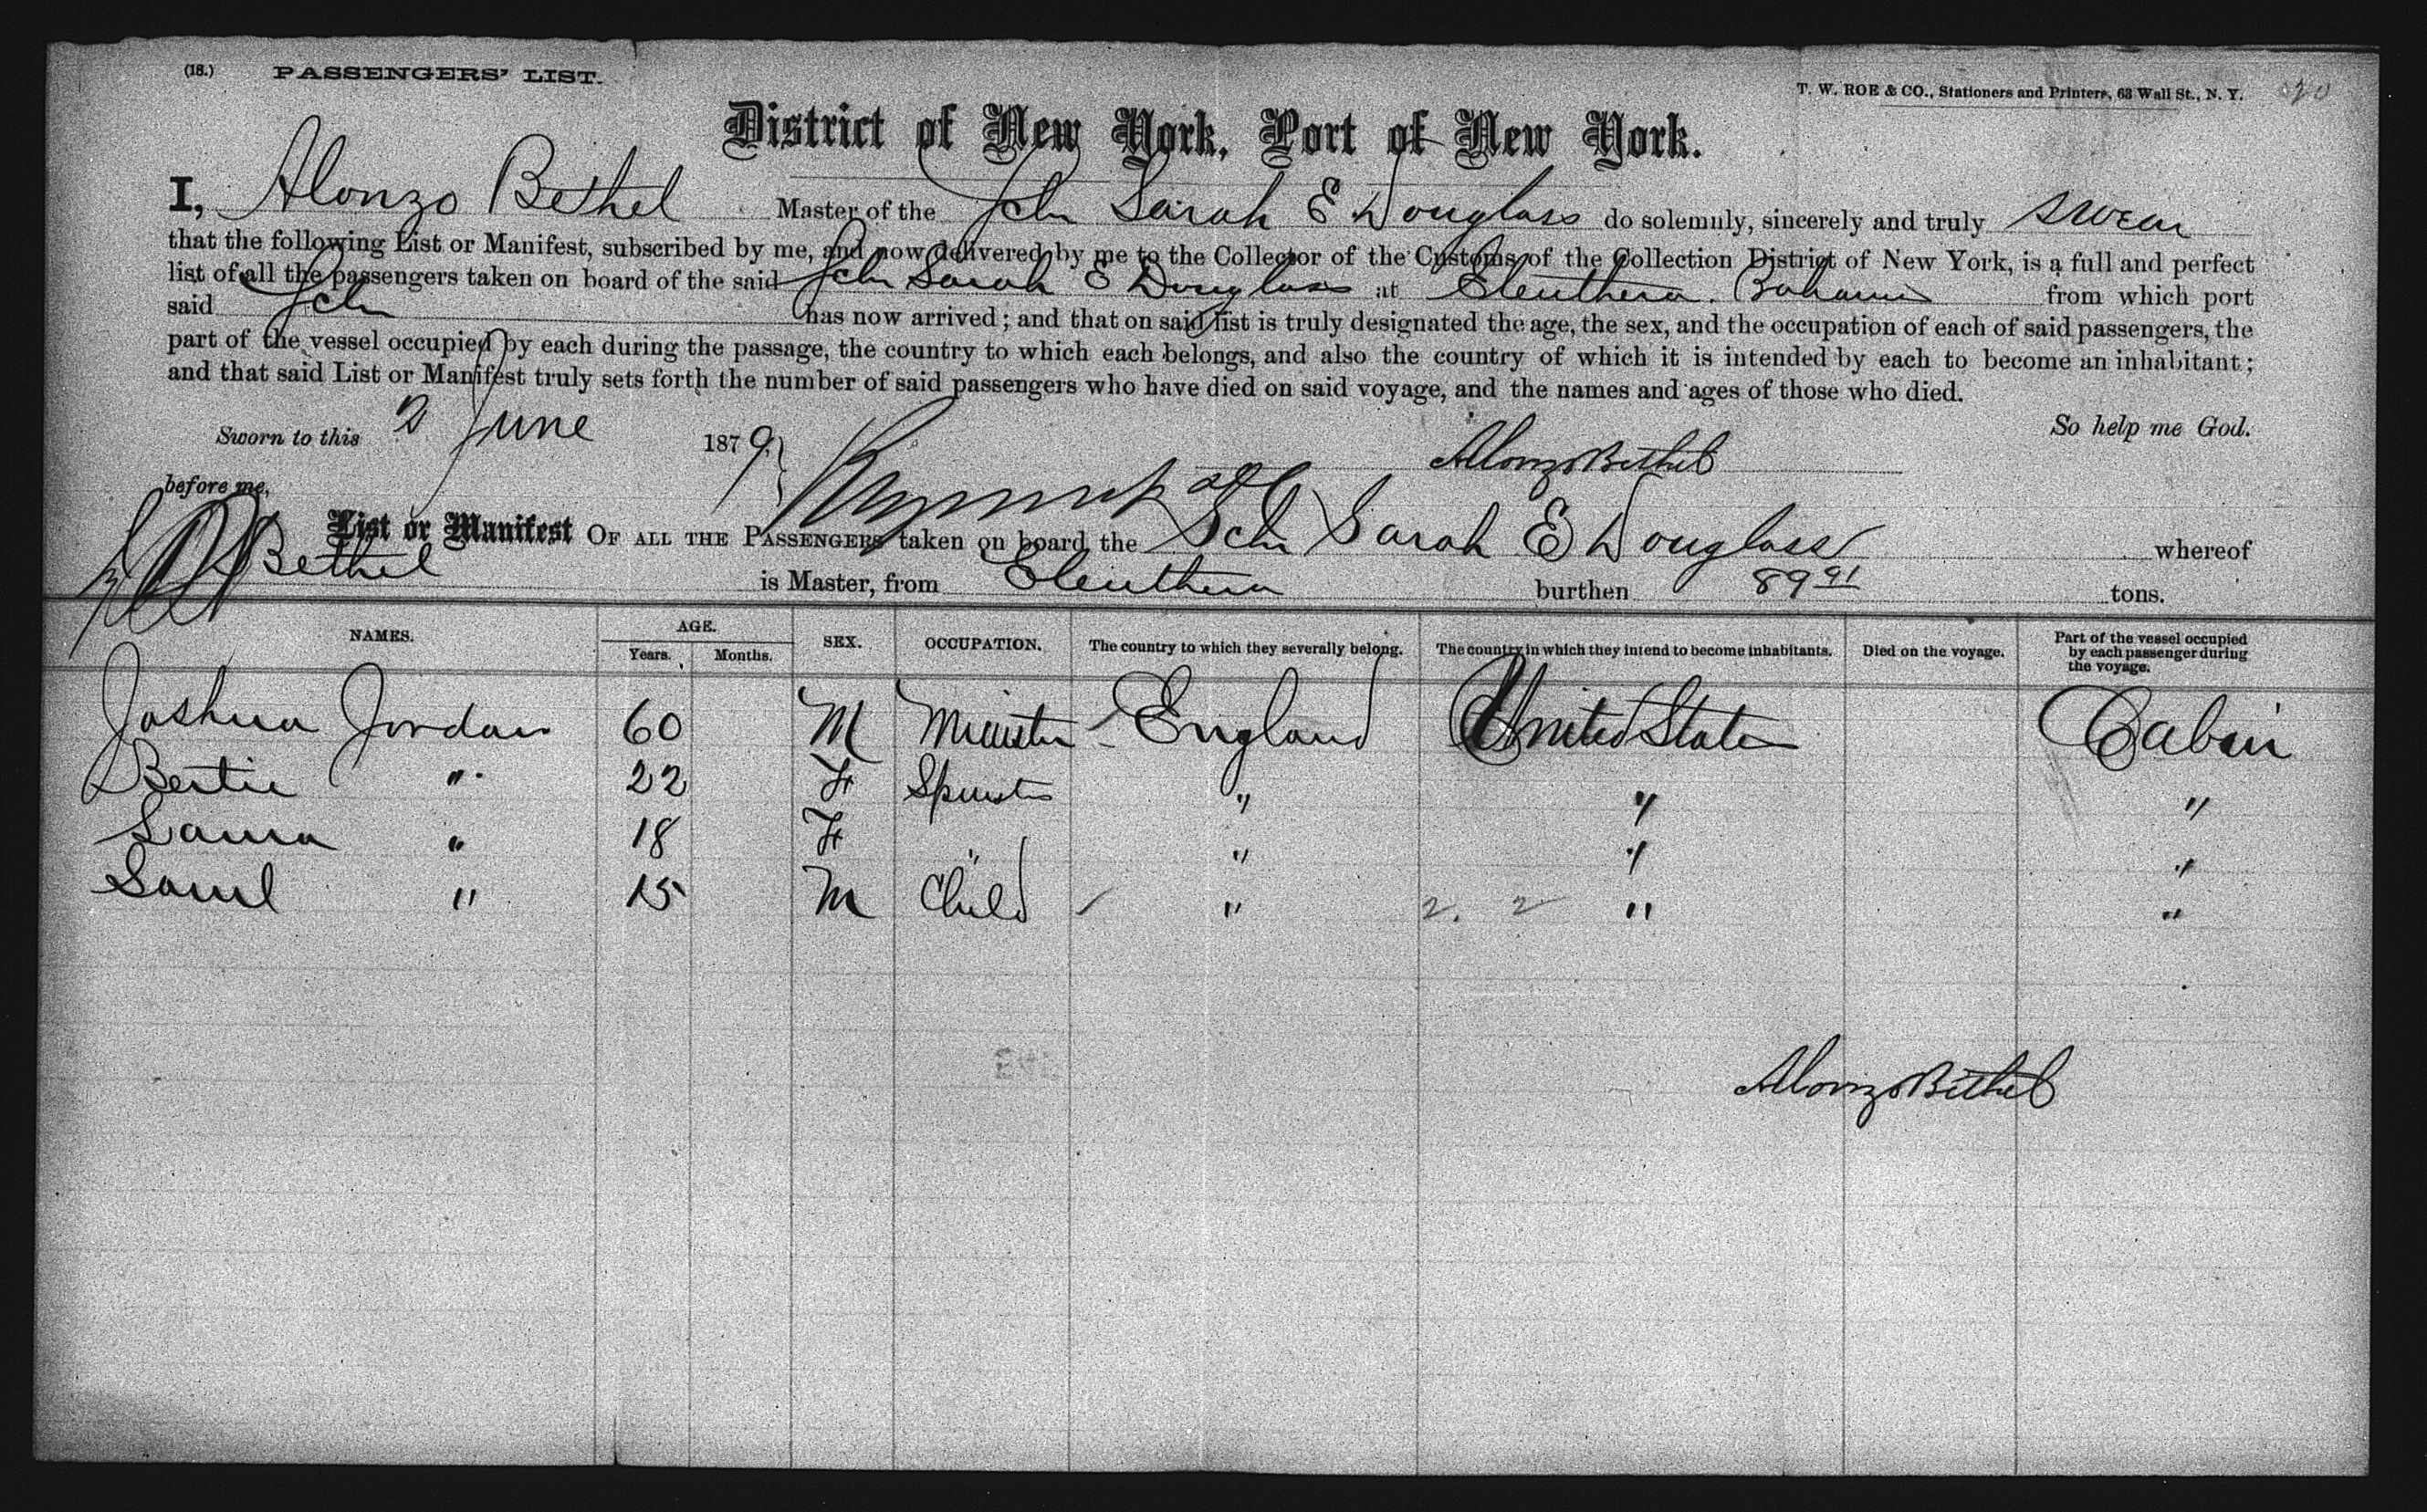 (18.) PASSENGERS' LIST.
T. W. ROE & CO., Stationers and Printers, 63 Wall St., N. Y.
District of New York, Port of New York.
I, Alonzo Bethel Master of the Schr Sarah E Douglass do solemnly, sincerely and truly swear
that the following List or Manifest, subscribed by me, and now delivered by me to the Collector of the Customs of the Collection District of New York, is a full and perfect
list of all the passengers taken on board of the said Schr Sarah E Douglass at Eleuthera. Bahamas from which port
said Schr has now arrived; and that on said list is truly designated the age, the sex, and the occupation of each of said passengers, the
part of the vessel occupied by each during the passage, the country to which each belongs, and also the country of which it is intended by each to become an inhabitant;
and that said List or Manifest truly sets forth the number of said passengers who have died on said voyage, and the names and ages of those who died.
Sworn to this 2 June 1879. So help me God.
Alonzo Bethel
before me,
List or Manifest OF ALL THE PASSENGERS taken on board the Schr Sarah E Douglass whereof
Bethel is Master, from Eleuthera burthen 89 91 tons.
NAMES. AGE. Years. Months. SEX. OCCUPATION. The country to which they severally belong. The country in which they intend to become inhabitants. Died on the voyage. Part of the vessel occupied by each passenger during the voyage.
Joshua Jordan 60 M Minister England United States Cabin
Bertie " 22 F Spinster " " "
Laura " 18 F " " " "
Saml " 15 M Child " 2. 2 " "
Alonzo Bethel